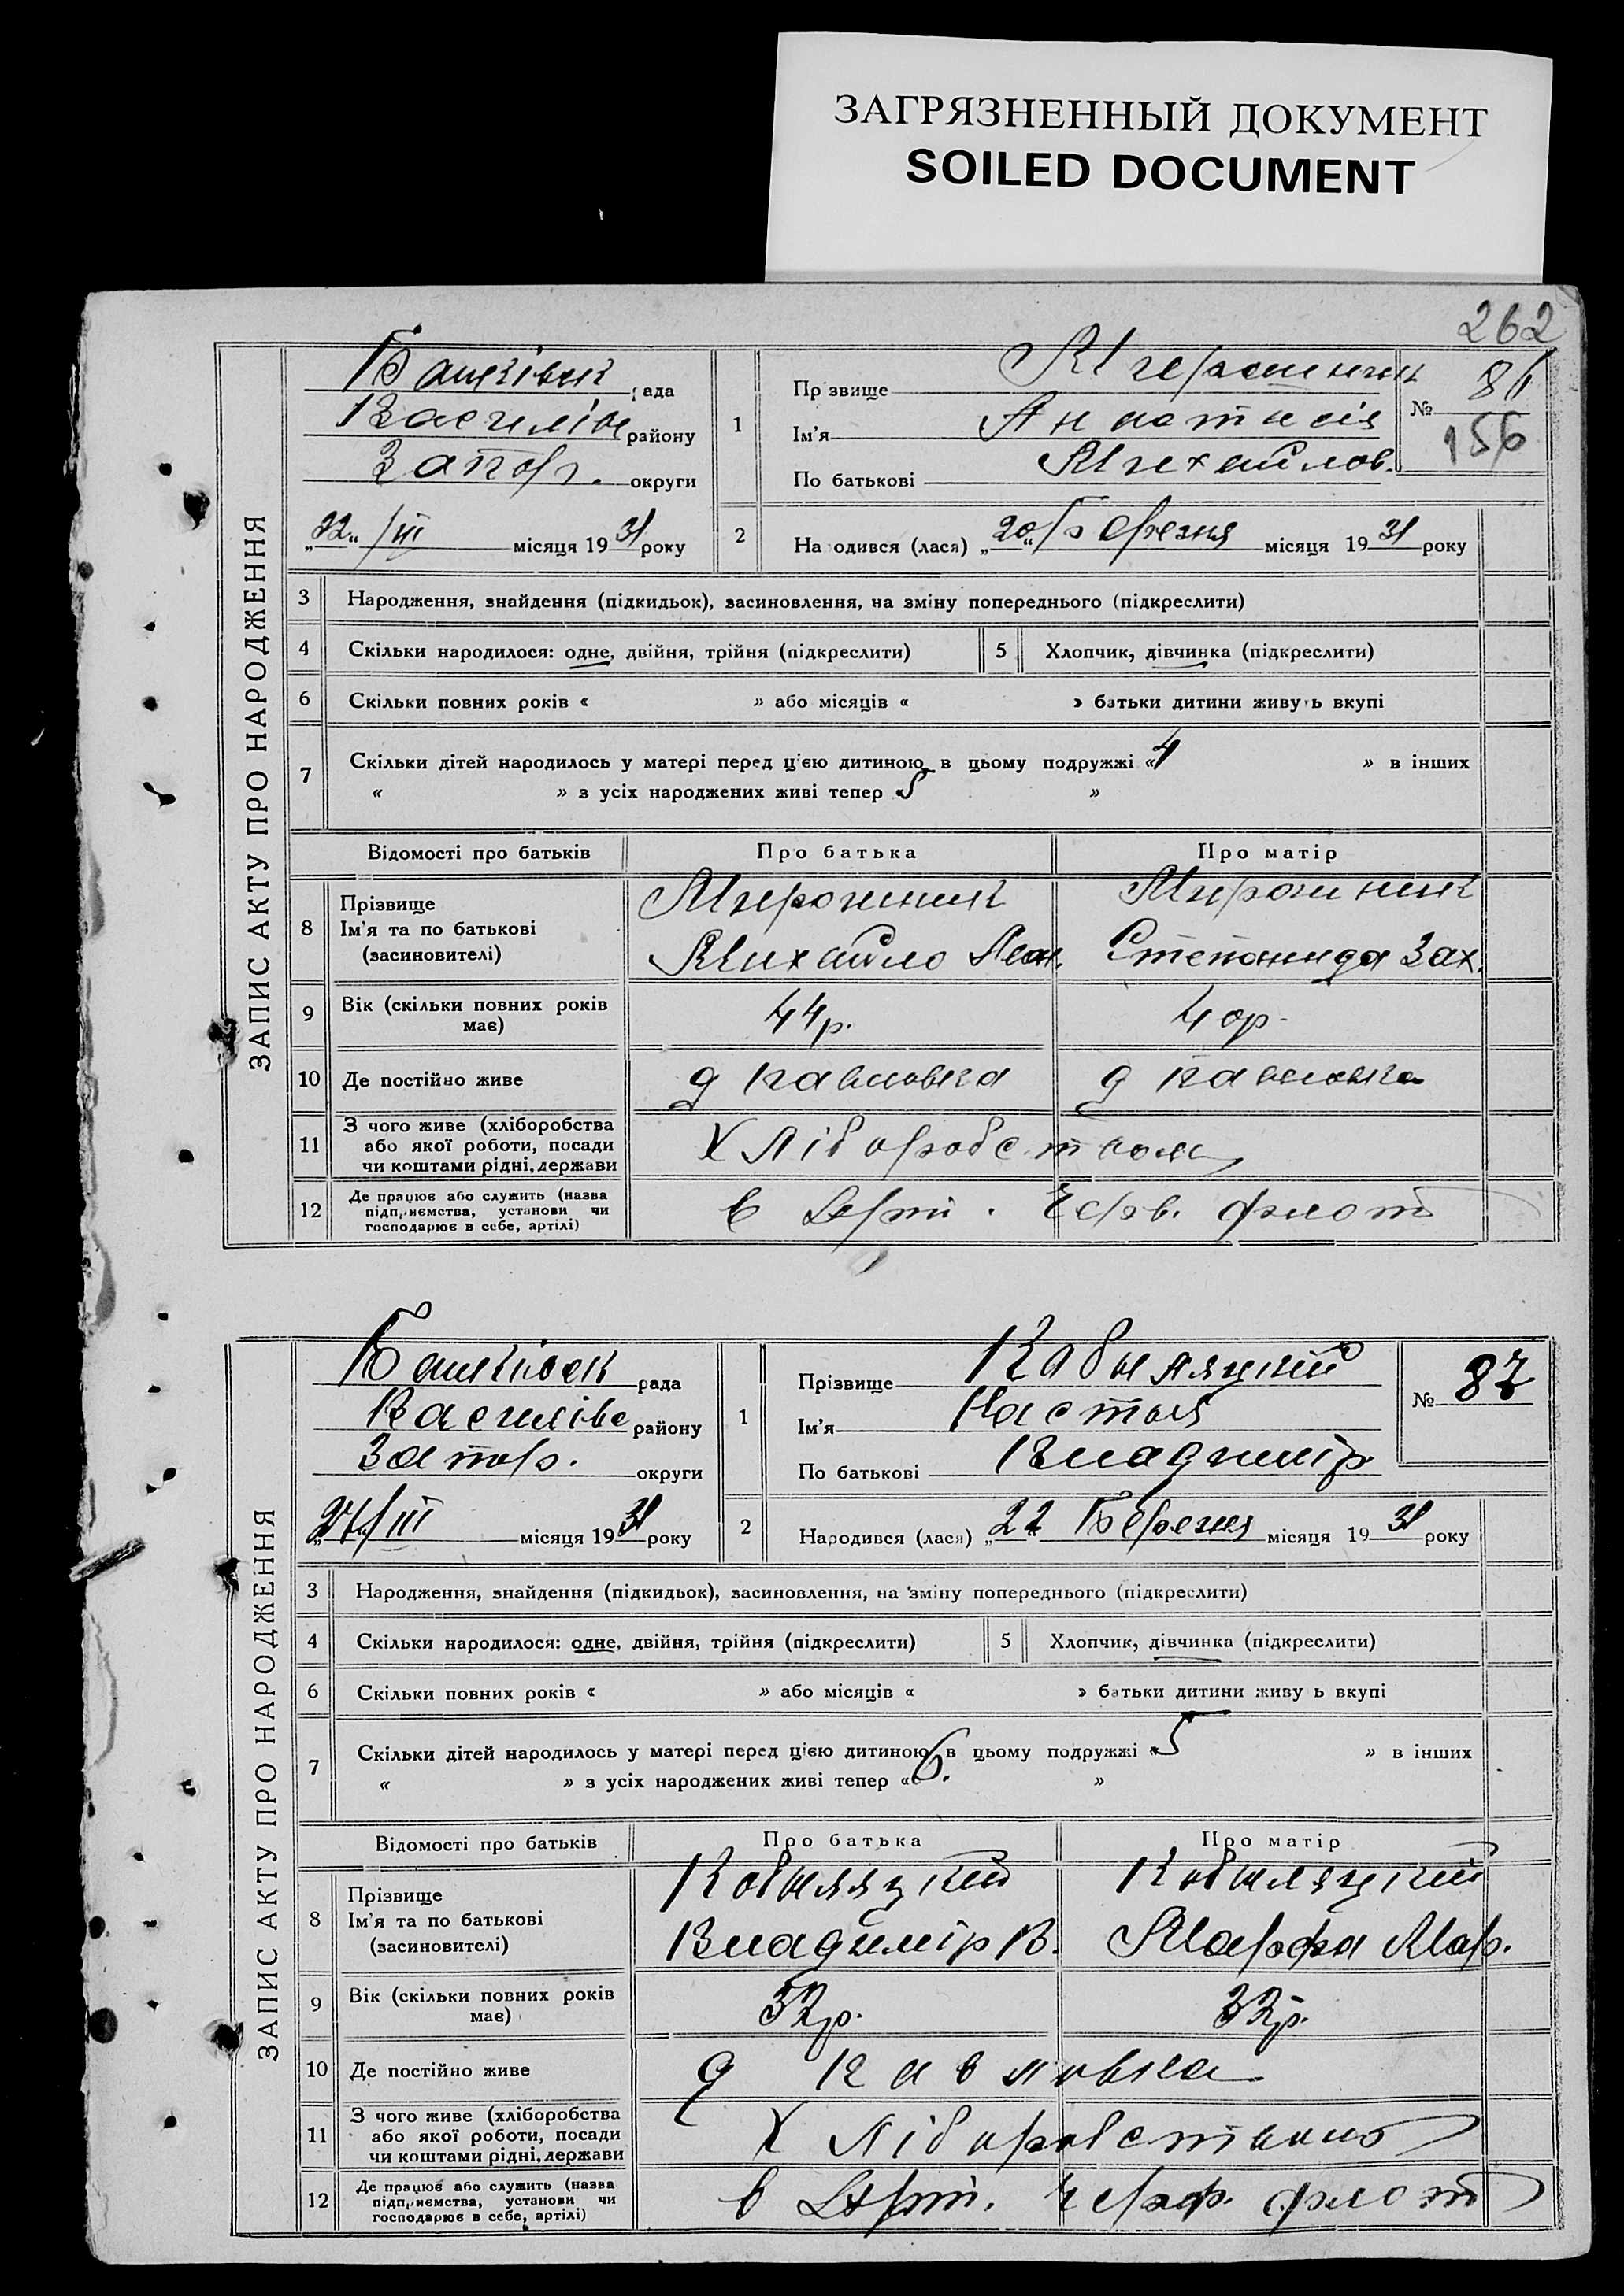 ЗАГРЯЗНЕННЫЙ ДОКУМЕНТ
SOILED DOCUMENT
262
ЗАПИС АКТУ ПРО НАРОДЖЕННЯ
рада
району
Запор. округи
"22" /III місяця 1931 року
1
Прізвище
Ім'я Анастасія
По батькові Михайлов.
№ 86
156
2
Народився (лася) "20" Березня місяця 1931 року
3 Народження, знайдення (підкидьок), засиновлення, на зміну попереднього (підкреслити)
4 Скільки народилося: одне, двійня, трійня (підкреслити)
5 Хлопчик, дівчинка (підкреслити)
6 Скільки повних років « » або місяців « » батьки дитини живуть вкупі
7 Скільки дітей народилось у матері перед цією дитиною в цьому подружжі «4 » в інших
« » з усіх народжених живі тепер «5 »
Відомості про батьків Про батька Про матір
8 Прізвище
Ім'я та по батькові
(засновителі)
Михайло
Степанида Зах.
9 Вік (скільки повних років
має)
44р. 40р.
10 Де постійно живе д Павловка д Павловка
11 З чого живе (хліборобства
або якої роботи, посади
чи коштами рідні, держави
Хліборобством
12 Де працює або служить (назва
підприємства, установи чи
господарює в себе, артілі)
в Арт. Черв. флот
ЗАПИС АКТУ ПРО НАРОДЖЕННЯ
рада
району
Запор. округи
/III місяця 1931 року
1
Прізвище Кобиляцкий
Ім'я Настья
По батькові Владимір
№ 87
2
Народився (лася) "22" Березня місяця 1931 року
3 Народження, знайдення (підкидьок), засиновлення, на зміну попереднього (підкреслити)
4 Скільки народилося: одне, двійня, трійня (підкреслити)
5 Хлопчик, дівчинка (підкреслити)
6 Скільки повних років « » або місяців « » батьки дитини живуть вкупі
7 Скільки дітей народилось у матері перед цією дитиною в цьому подружжі «5 » в інших
« » з усіх народжених живі тепер «6. »
Відомості про батьків Про батька Про матір
8 Прізвище
Ім'я та по батькові
(засиновителі)
Кобиляцкий
Владимір В.
Кобиляцкий
Марфа Мар.
9 Вік (скільки повних років
має)
32р. 32р.
10 Де постійно живе д Павловка
11 З чого живе (хліборобства
або якої роботи, посади
чи коштами рідні, держави
Хліборобством
12 Де працює або служить (назва
підприємства, установи чи
господарює в себе, артілі)
в Арт. флот